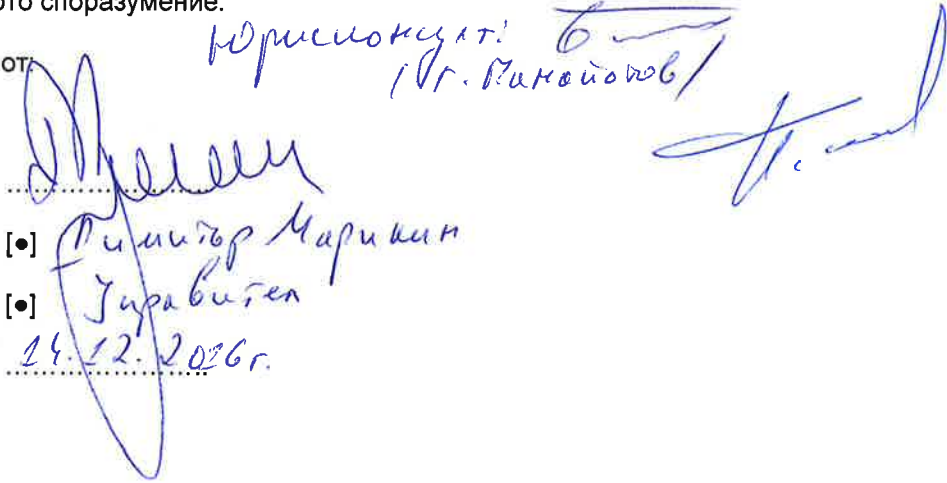 ото споразумение.
Юрисконсулт:
/Г. Панайотов/
от:
....................
[•] Димитър Маринин
[•] Управител
14.12.2016г.